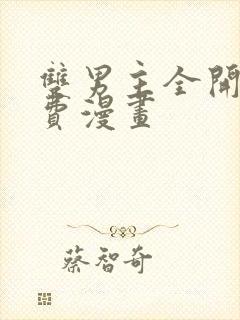 雙男主全開
費漫畫
蔡智奇